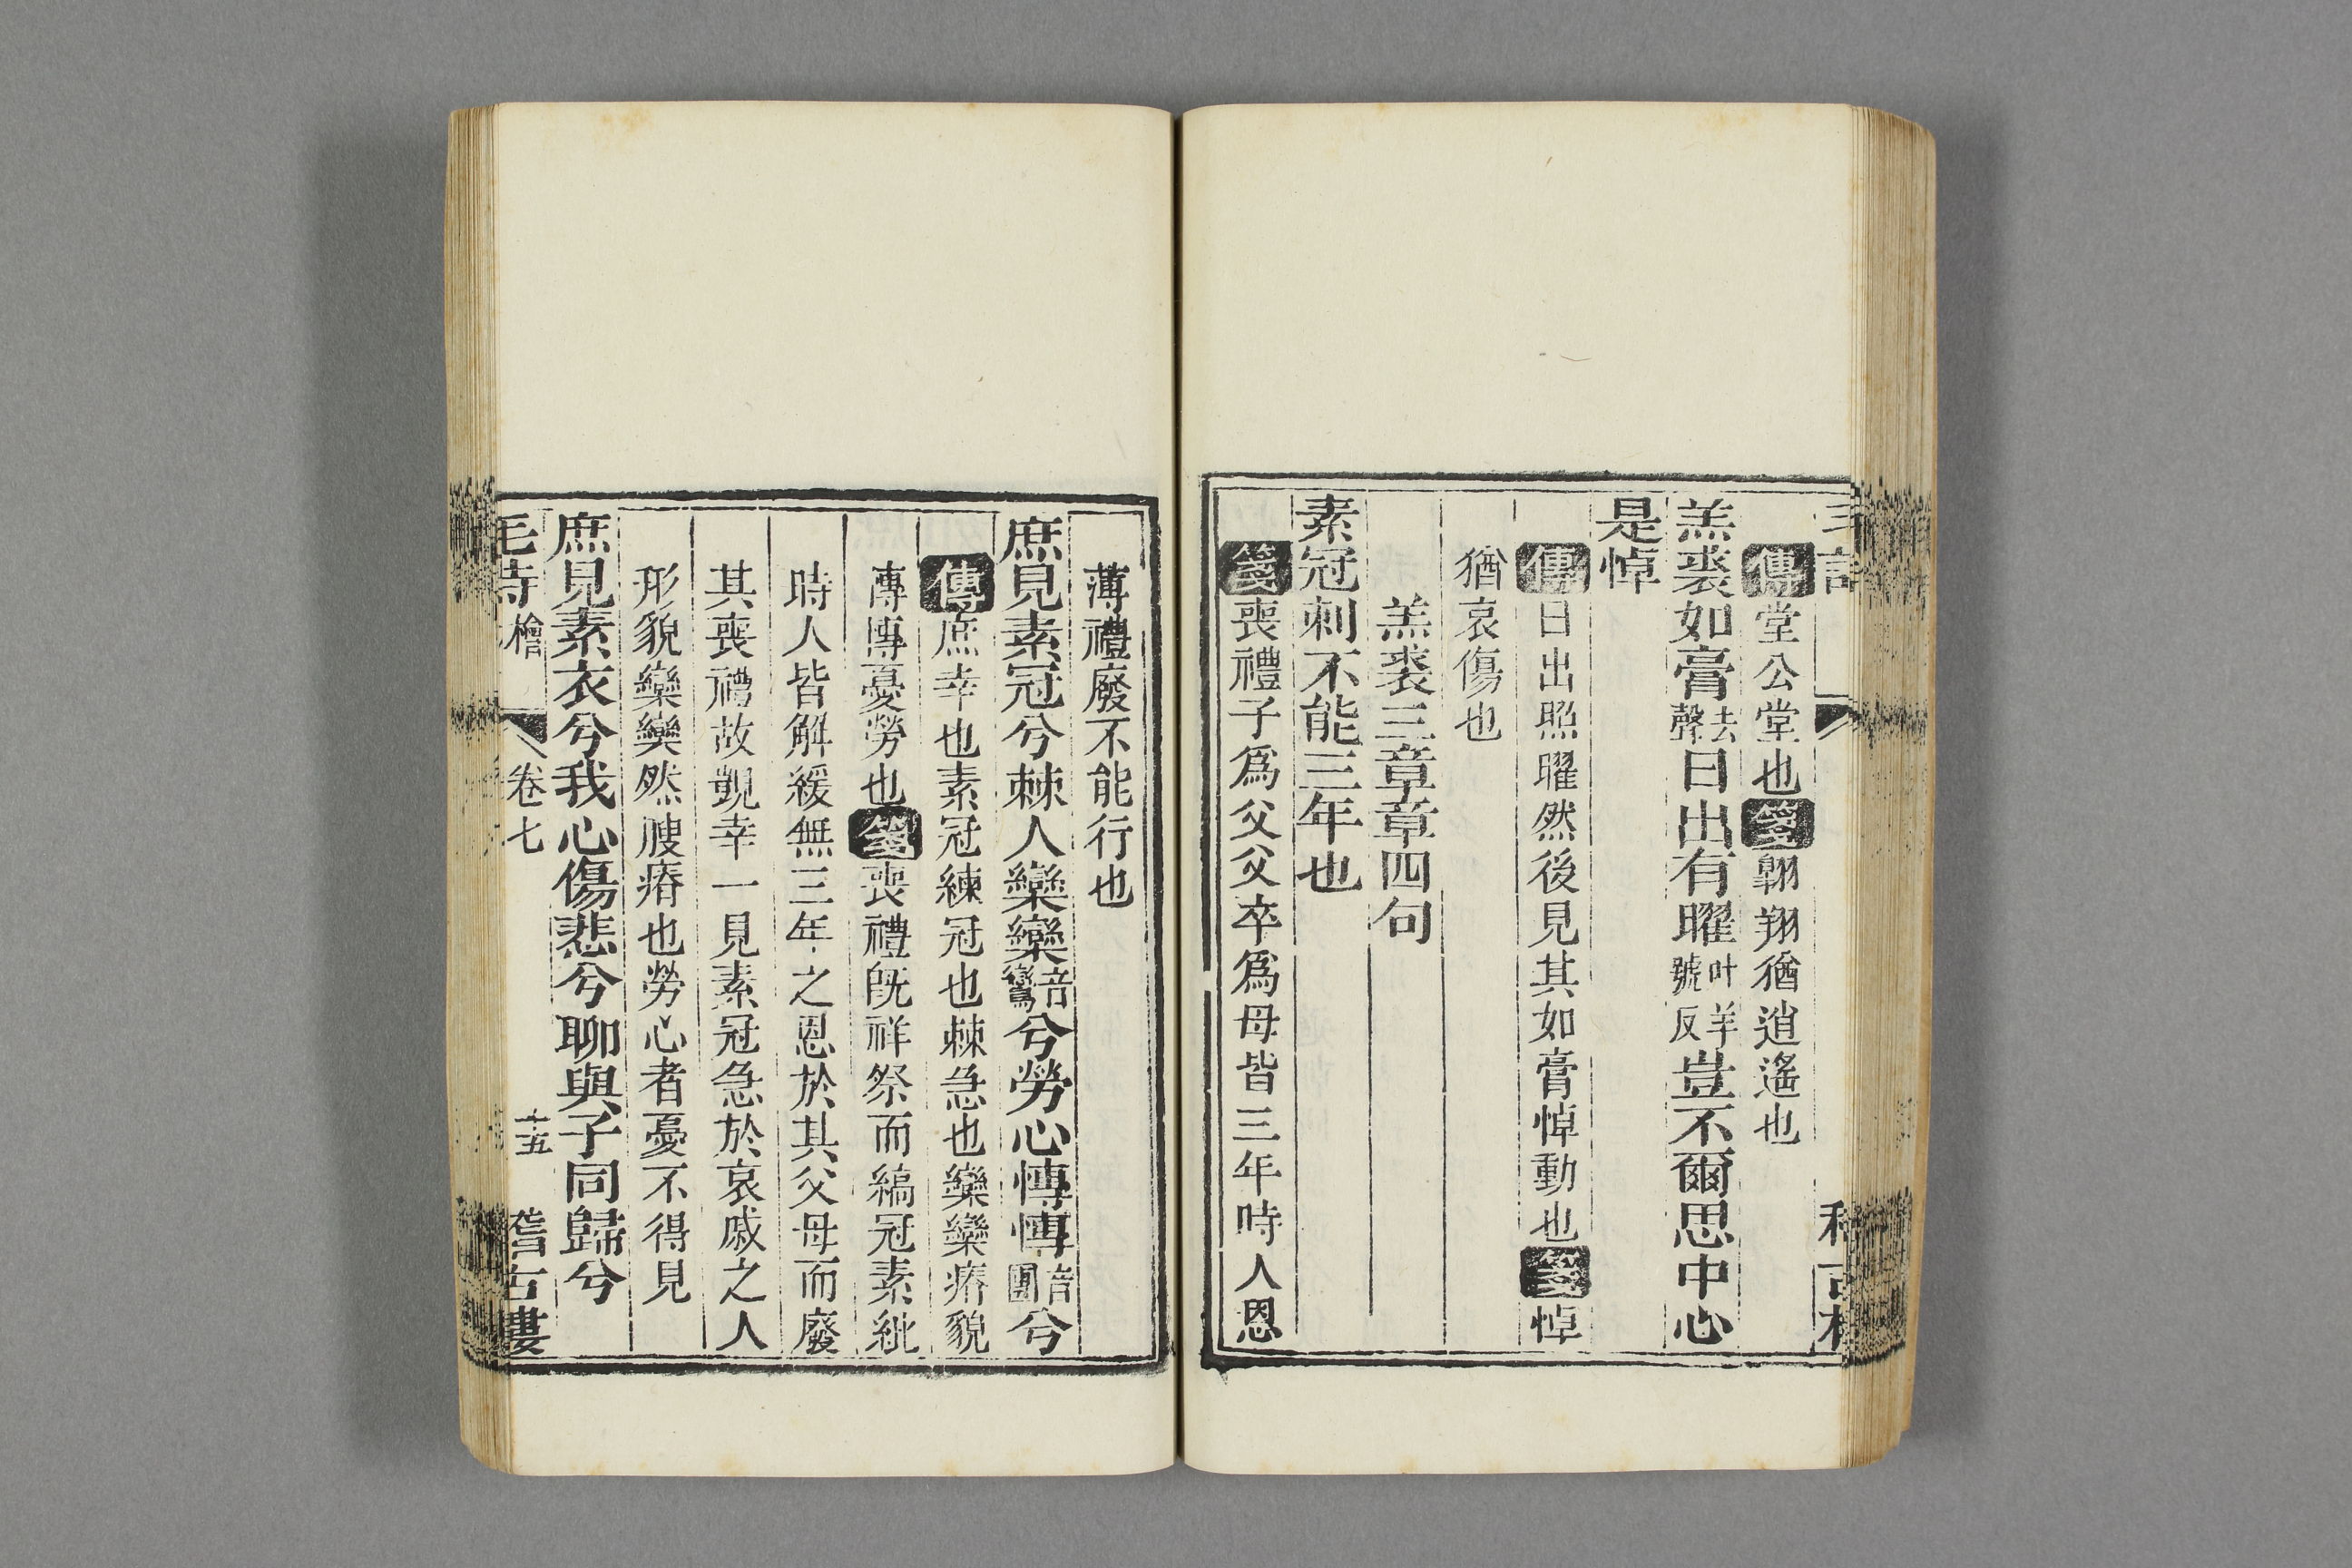 傳堂公堂也箋翺翔猶逍遙也
羔裘如膏去聲日出有曜叶羊號反豈不爾思中心
是悼
傳日出照曜然後見其如膏悼動也箋悼
猶哀傷也
羔裘三章章四句
素冠刺不能三年也
箋喪禮子爲父父卒爲母皆三年時人恩
薄禮廢不能行也
庶見素冠兮棘人欒欒音鸞兮勞心慱慱音團兮
傳庶幸也素冠練冠也棘急也欒欒瘠貌
慱慱憂勞也箋喪禮旣祥祭而縞冠素紕
時人皆解緩無三年之恩於其父母而廢
其喪禮故覬幸一見素冠急於哀戚之人
形貌欒欒然膄瘠也勞心者憂不得見
庶見素衣兮我心傷悲兮聊與子同歸兮
毛詩檜 卷七 十五 稽古樓